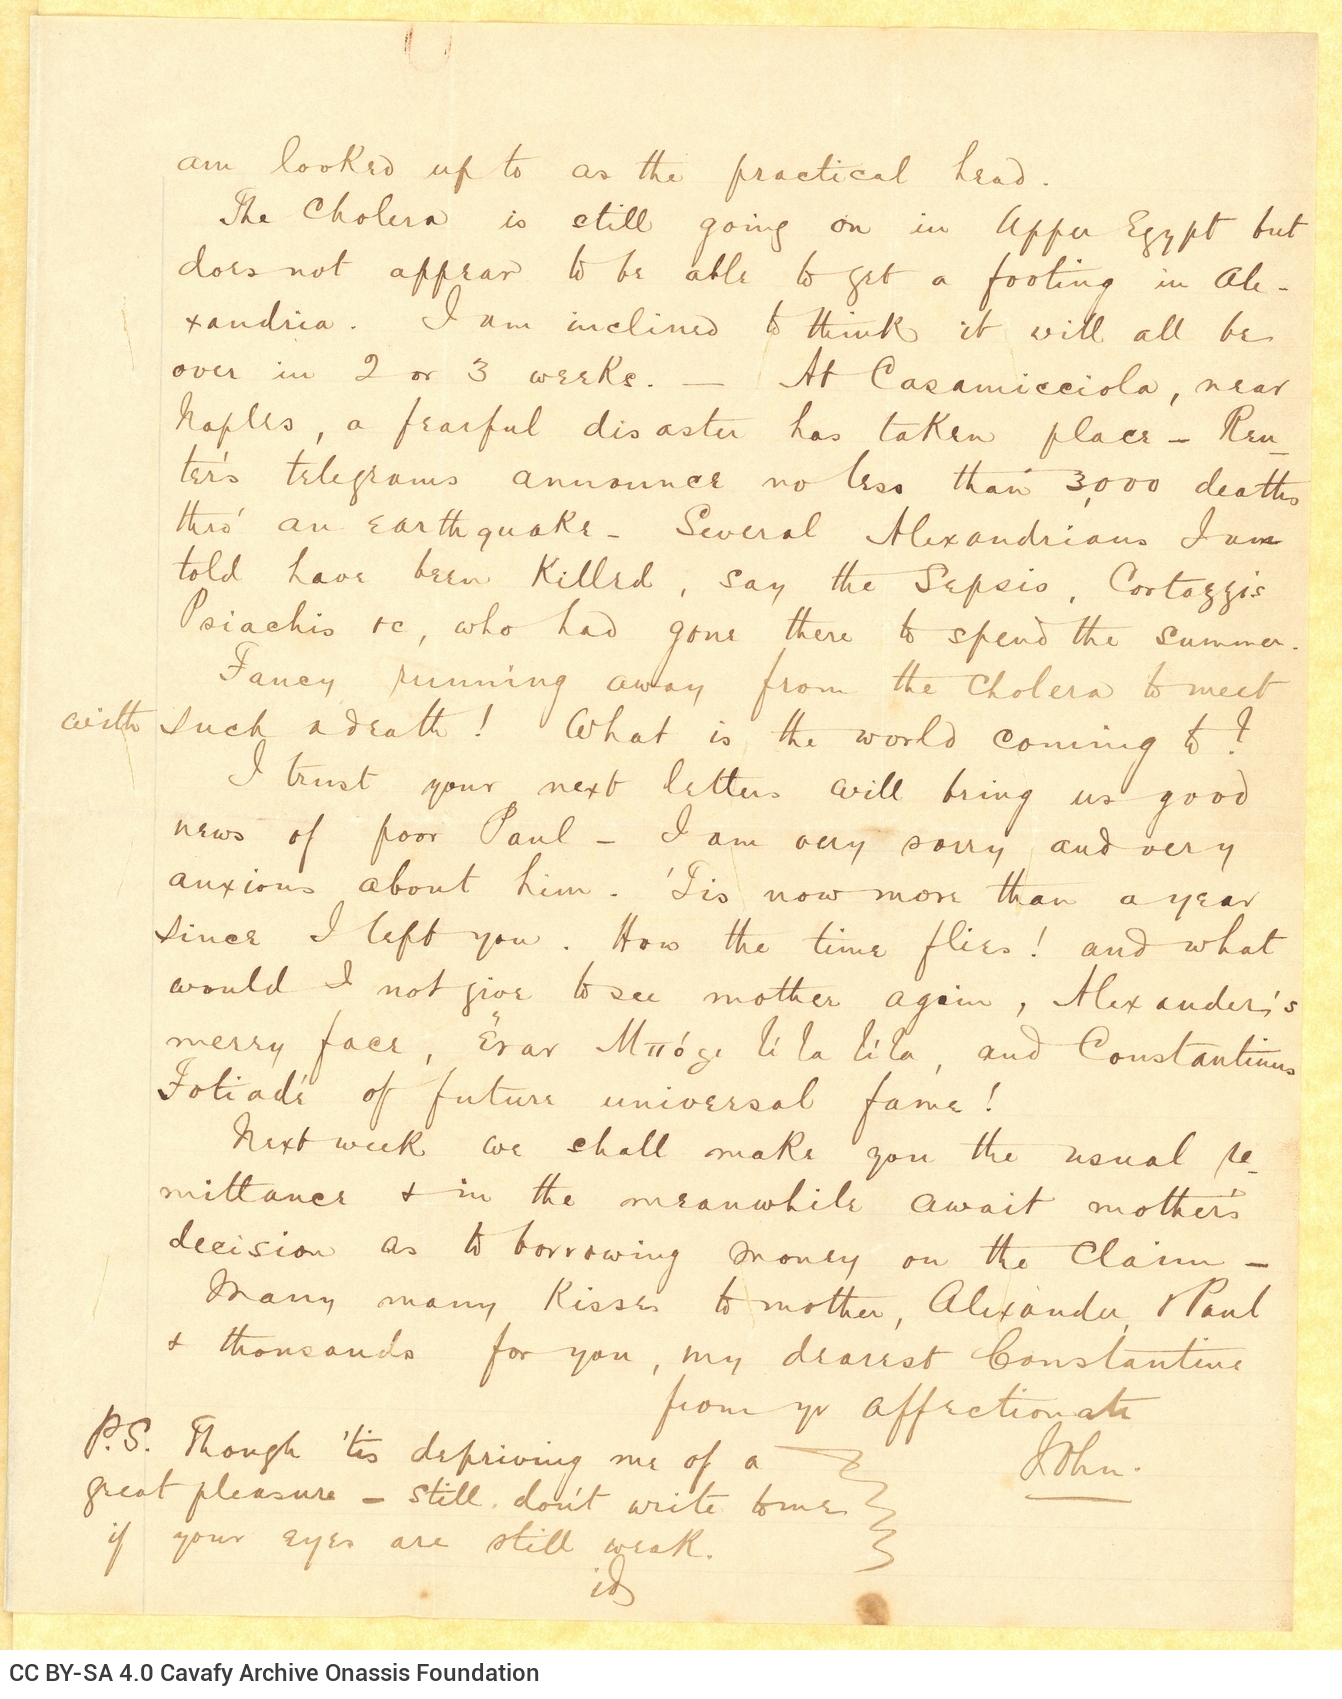 am looked up to as the practical head.
The Cholera is still going on in Upper Egypt but
does not appear to be able to get a footing in Ale-
xandria. I am inclined to think it will all be
over in 2 or 3 weeks. — At Casamicciola, near
Naples, a fearful disaster has taken place — Reu-
ter's telegrams announce no less than 3,000 deaths
thro' an earthquake — Several Alexandrians I am
told have been killed, say the Sepsis, Cortazzis
Psiachis &c, who had gone there to spend the summer.
Fancy running away from the cholera to meet
with such a death! What is the world coming to?
I trust your next letters will bring us good
news of poor Paul — I am very sorry and very
anxious about him. 'Tis now more than a year
since I left you. How the time flies! and what
would I not give to see mother again, Alexander's
merry face, and Constantinus
Fotiadé of future universal fame!
Next week we shall make you the usual re-
mittance & in the meanwhile await mother's
decision as to borrowing money on the Claim —
Many many kisses to mother, Alexander, & Paul
& thousands for you, my dearest Constantine
from yr affectionate
John.
P.S. Though 'tis depriving me of a
great pleasure — still don't write to me
if your eyes are still weak.
id
CC BY-SA 4.0 Cavafy Archive Onassis Foundation